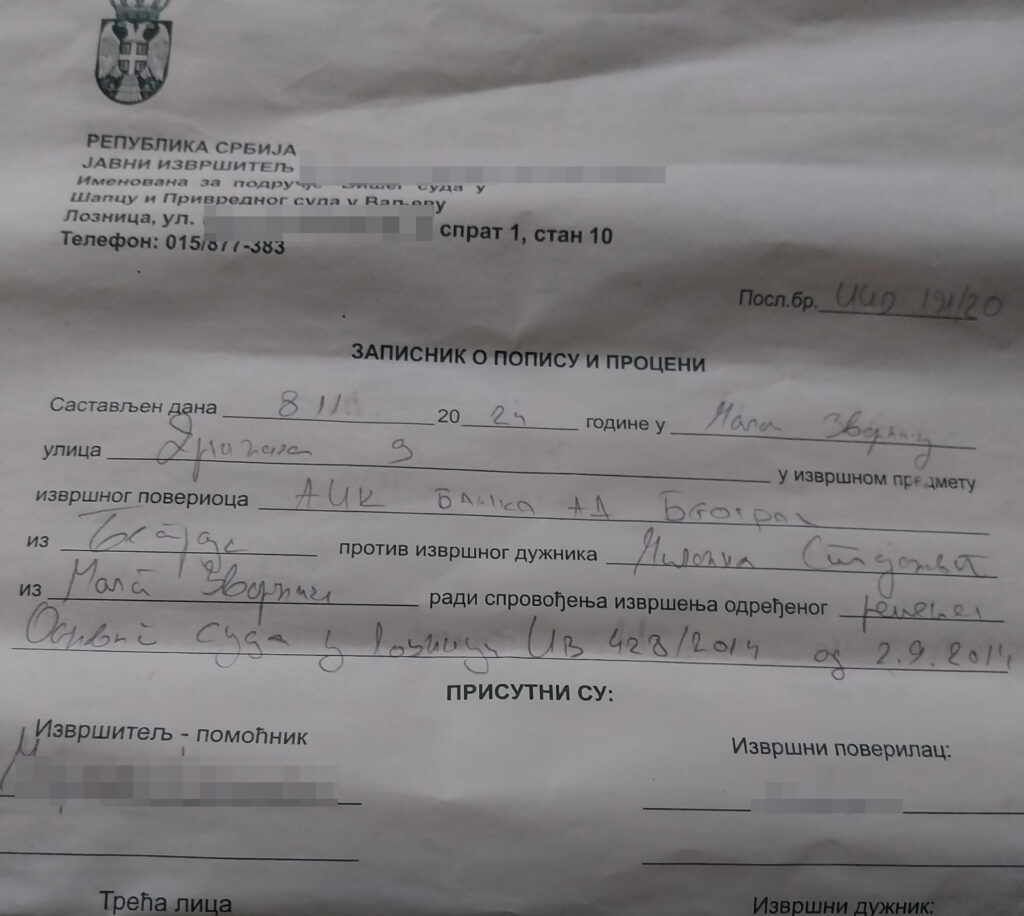 РЕПУБЛИКА СРБИЈА
ЈАВНИ ИЗВРШИТЕЉ
Именована за подручје Вишег суда у
Шапцу и Привредног суда у Ваљеву
Лозница, ул. спрат 1, стан 10
Телефон: 015/877-383
Посл.бр. ИИв 191/20
ЗАПИСНИК О ПОПИСУ И ПРОЦЕНИ
Састављен дана 8 11 20 24 године у Мали Зворник
улица 9 у извршном предмету
извршног повериоца АИК БАНКА АД Београд
из против извршног дужника
из Мали Зворник ради спровођења извршења одређеног
суда у Лозници Ив 428/2014 од 2.9.2014
ПРИСУТНИ СУ:
Извршитељ - помоћник
Извршни поверилац:
Трећа лица
Извршни дужник: